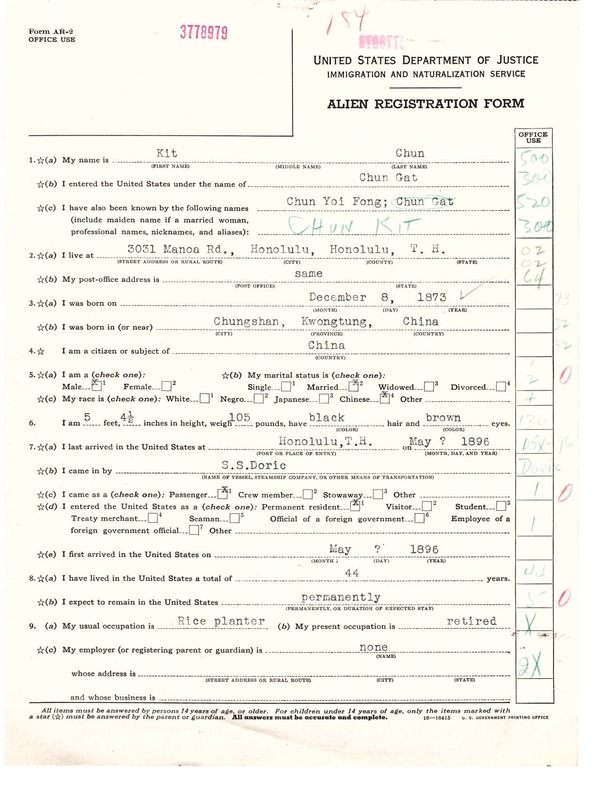 Form AR-2
OFFICE USE
3778979
154
UNITED STATES DEPARTMENT OF JUSTICE
IMMIGRATION AND NATURALIZATION SERVICE
ALIEN REGISTRATION FORM
OFFICE USE
1. ☆(a) My name is Kit Chun 500
(FIRST NAME) (MIDDLE NAME) (LAST NAME)
☆(b) I entered the United States under the name of Chun Gat 300
☆(c) I have also been known by the following names Chun Yoi Fong; Chun Gat 520
(include maiden name if a married woman, CHUN KIT 300
professional names, nicknames, and aliases):
2. ☆(a) I live at 3031 Manoa Rd., Honolulu, Honolulu, T. H. 02
(STREET ADDRESS OR RURAL ROUTE) (CITY) (COUNTY) (STATE) 02
☆(b) My post-office address is same 64
(POST OFFICE) (STATE)
3. ☆(a) I was born on December 8, 1873 73
(MONTH) (DAY) (YEAR)
☆(b) I was born in (or near) Chungshan, Kwongtung, China 52
(CITY) (PROVINCE) (COUNTRY)
4. ☆ I am a citizen or subject of China 52
(COUNTRY)
5. ☆(a) I am a (check one): ☆(b) My marital status is (check one): 1
Male X 1 Female 2 Single 1 Married X 2 Widowed 3 Divorced 4 2 0
☆(c) My race is (check one): White 1 Negro 2 Japanese 3 Chinese X 4 Other 4
6. I am 5 feet, 4½ inches in height, weigh 105 pounds, have black hair and brown eyes. 130
(COLOR) (COLOR)
7. ☆(a) I last arrived in the United States at Honolulu, T.H. on May ? 1896
(PORT OR PLACE OF ENTRY) (MONTH, DAY, AND YEAR)
☆(b) I came in by S.S.Doric Doric
(NAME OF VESSEL, STEAMSHIP COMPANY, OR OTHER MEANS OF TRANSPORTATION)
☆(c) I came as a (check one): Passenger X 1 Crew member 2 Stowaway 3 Other 1 0
☆(d) I entered the United States as a (check one): Permanent resident X 1 Visitor 2 Student 3
Treaty merchant 4 Seaman 5 Official of a foreign government 6 Employee of a 1
foreign government official 7 Other
☆(e) I first arrived in the United States on May ? 1896
(MONTH) (DAY) (YEAR)
8. ☆(a) I have lived in the United States a total of 44 years. 44
☆(b) I expect to remain in the United States permanently 5 0
(PERMANENTLY, OR DURATION OF EXPECTED STAY)
9. (a) My usual occupation is Rice planter (b) My present occupation is retired X
☆(c) My employer (or registering parent or guardian) is none
(NAME)
whose address is 2X
(STREET ADDRESS OR RURAL ROUTE) (CITY) (STATE)
and whose business is
All items must be answered by persons 14 years of age, or older. For children under 14 years of age, only the items marked with
a star (☆) must be answered by the parent or guardian. All answers must be accurate and complete. 16—16415 U. S. GOVERNMENT PRINTING OFFICE